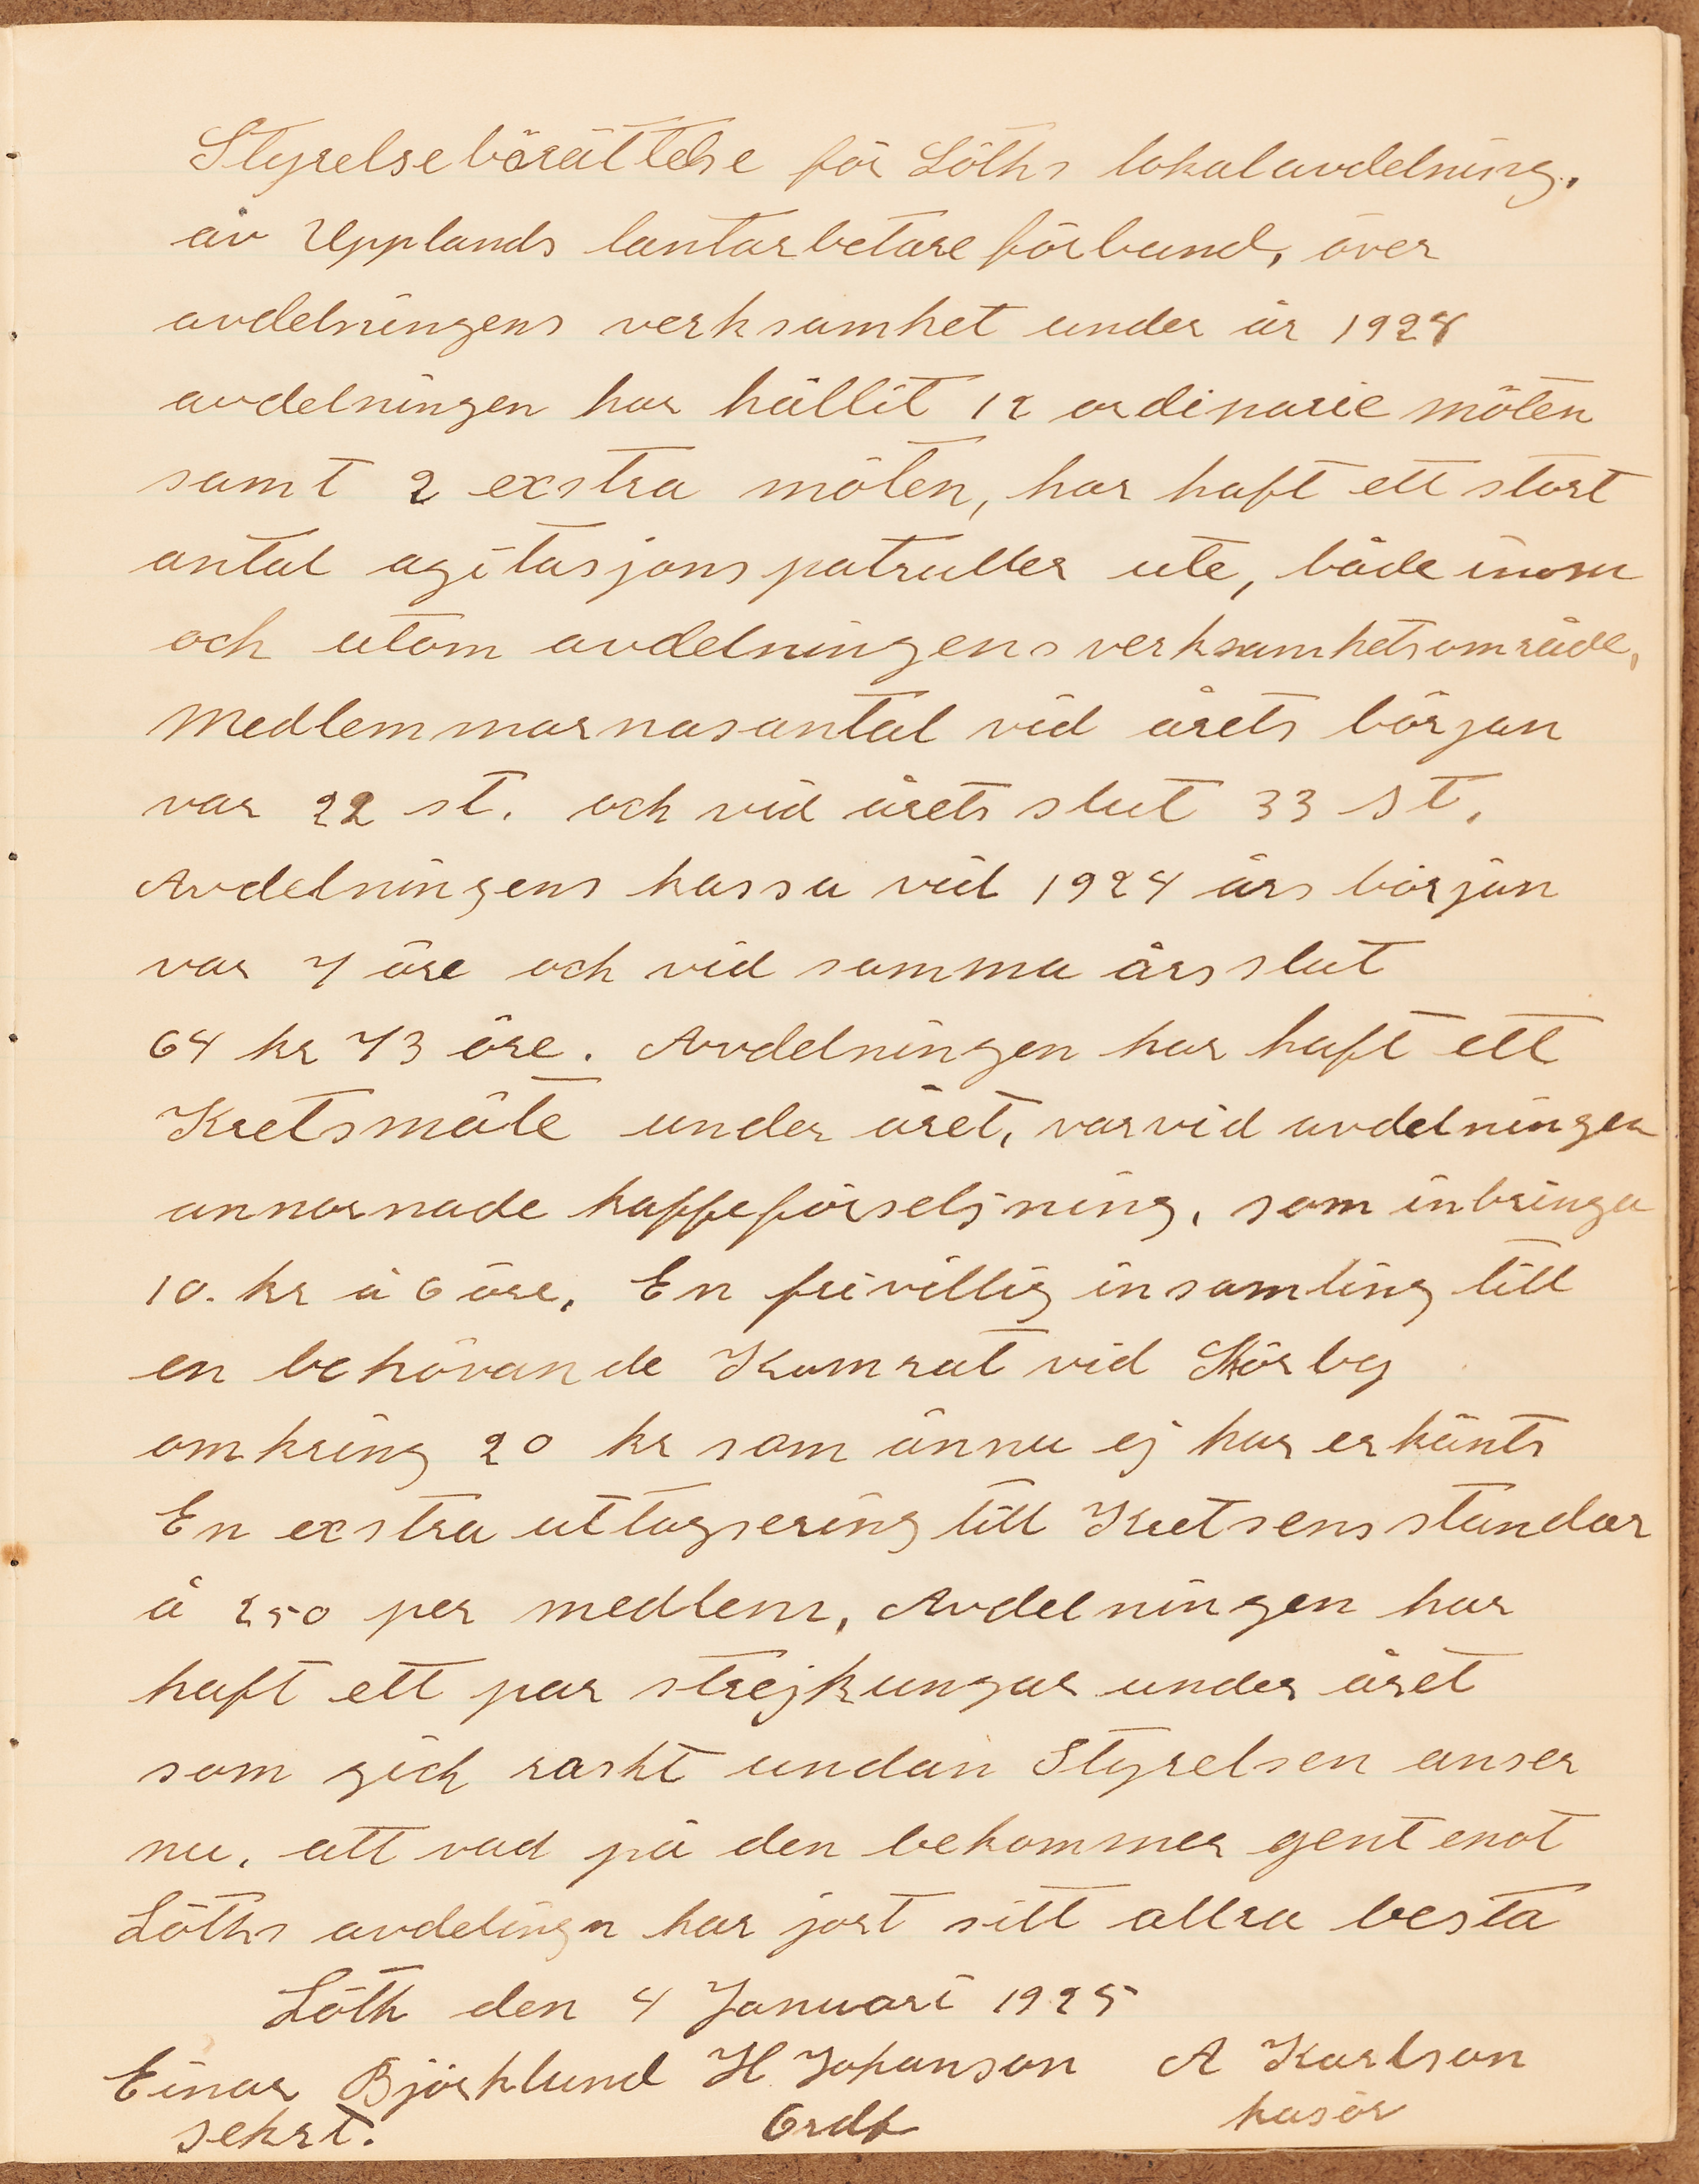 Styrelsebörättelse för Löths lokalavdelning.
av Upplands lantarbetareförbund, över
avdelningens verksamhet under år 1924
avdelningen har hållit 12 ordinarie möten
samt 2 exstra möten, har haft ett stort
antal agitasjonspatruller ute, både inom
och utom avdelningens verksamhetsområde,
Medlemmarnasantal vid årets början
var 22 st. och vid årets slut 33 st.
Avdelningens kassa vid 1924 års början
var 7 öre och vid samma års slut
64 kr 73 öre. Avdelningen har haft ett
Kretsmöte under året, varvid avdelningen
annornade kaffeförseljning, som inbringa
10. kr å 6 öre. En frivillig insamling till
en behövande Kamrat vid Skörby
omkring 20 kr som ännu ej har erkänts
En exstra uttagsering till Kretsens standar
å 250 per medlem, Avdelningen har
haft ett par strejkungar under året
som gick raskt undan Styrelsen anser
nu, att vad på den bekommer gent emot
Löths avdelingn har jort sitt allra besta
Löth den 4 Januari 1925
Einar Björklund H Johanson A Karlson
sekrt. Ordf kasör